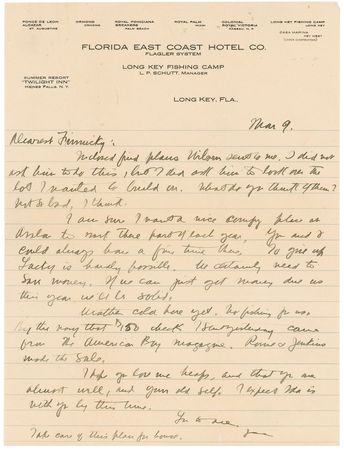 PONCE DE LEON
ALCAZAR
ST. AUGUSTINE
ORMOND
ORMOND
ROYAL POINCIANA
BREAKERS
PALM BEACH
ROYAL PALM
MIAMI
COLONIAL
ROYAL VICTORIA
NASSAU, N.P.
LONG KEY FISHING CAMP
LONG KEY
CASA MARINA
KEY WEST
FLORIDA EAST COAST HOTEL CO.
FLAGLER SYSTEM
LONG KEY FISHING CAMP
L. P. SCHUTT, MANAGER
SUMMER RESORT
"TWILIGHT INN"
HAINES FALLS, N.Y.
LONG KEY, FLA.
Mar 9.
Dearest
Inclosed find plans sent to me. I did not
ask him to do this, but I did ask him to look over the
lot I wanted to build on. What do you think of them?
Not so bad, I think.
I am sure I want a nice comfy place on
to rest there part of each year. You and I
could always have a fine time there. To give up
is hardly possible. We certainly need to
save money. If we can just get money due us
this year we'll be solid.
Weather cold here yet. No fishing for us.
By the way that $150 check I sent yesterday came
from the American Boy magazine. Romer Jenkins
made the sale.
I hope you love me heaps, and that you are
almost well, and your old self. I expect Ida is
with you by this time.
Take care of this plan for house.